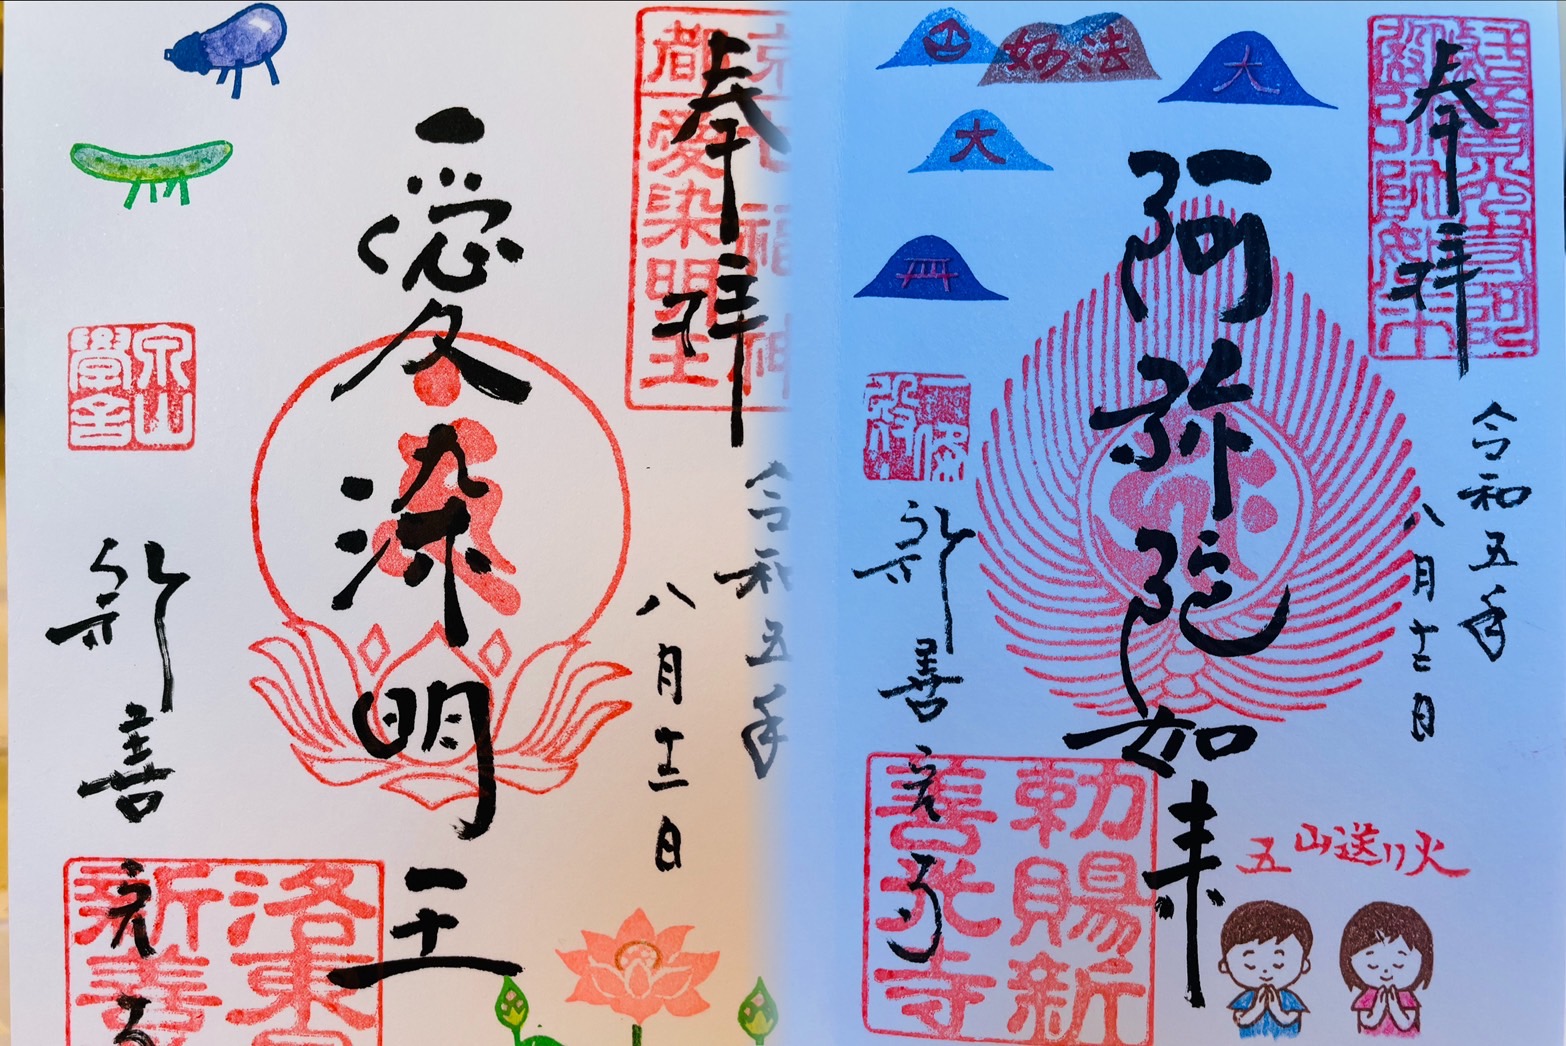 奉拝
令和五年
八月十二日
阿弥陀如来
新善光寺
勅賜新
善光寺
妙法
大
大
五山送り火
奉拝
令和五年
八月十二日
京都
七福神
愛染明王
愛染明王
新善光寺
泉山
學舎
洛東
新善